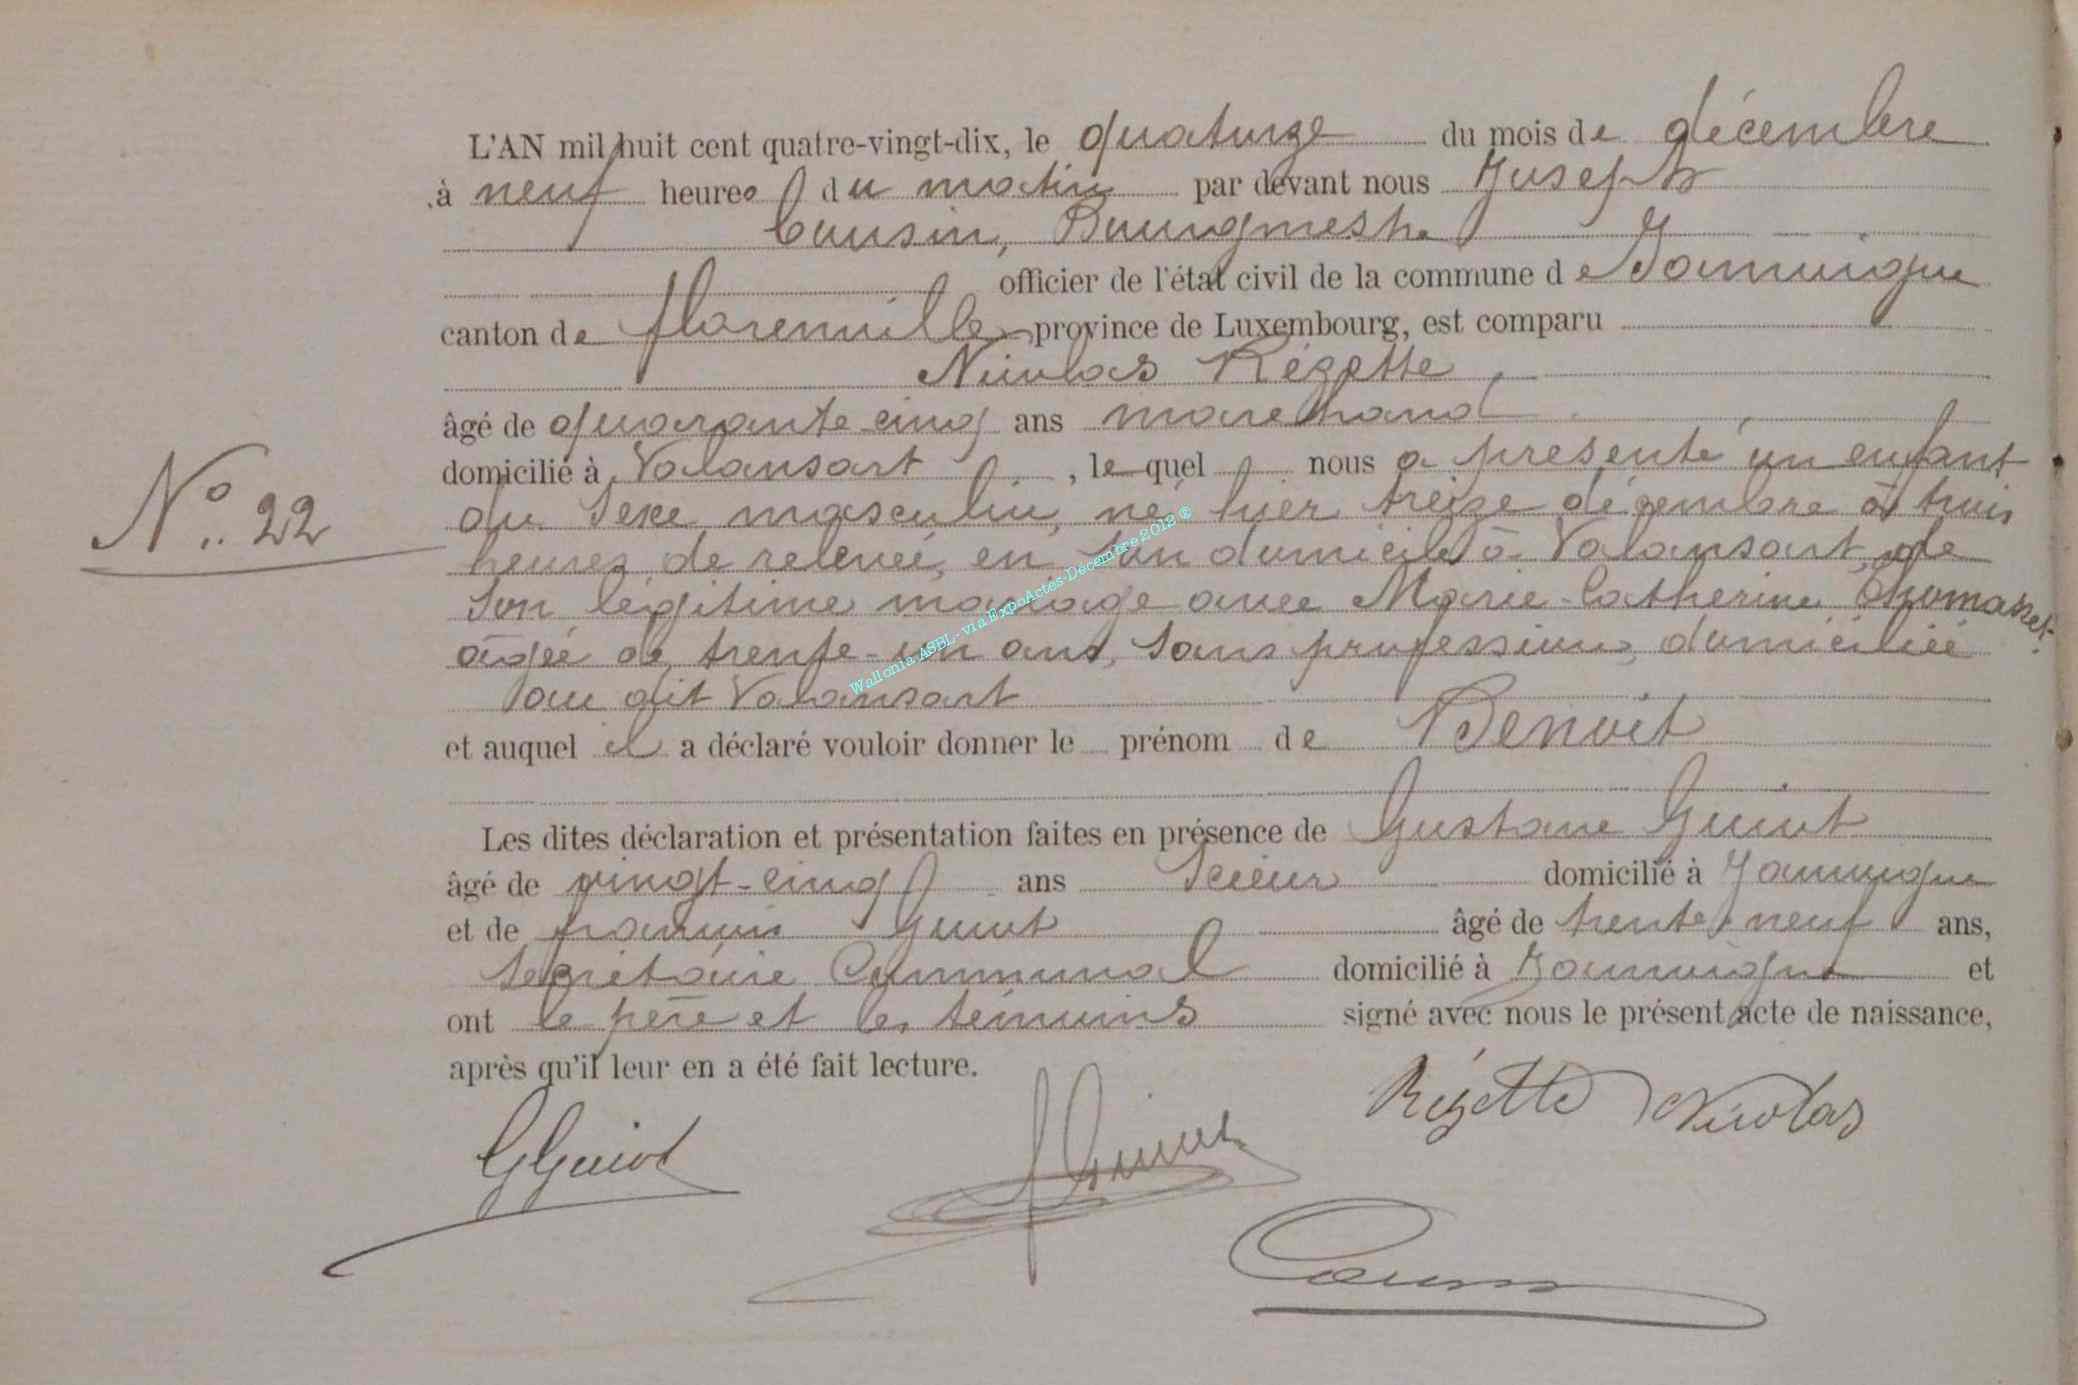 L'AN mil huit cent quatre-vingt-dix, le quatorze du mois de décembre
à neuf heures du matin par devant nous Joseph
Cousin, Bourgmestre
officier de l'état civil de la commune de Jamoigne
canton de florenville province de Luxembourg, est comparu
Nicolas Rézette
âgé de quarante-cinq ans marchand
domicilié à Valansart, le quel nous a présenté un enfant
N° 22
du sexe masculin, né hier treize décembre à trois
heures de relevée, en son domicile à Valansart, de
son légitime mariage avec Marie-Catherine Thomasset
âgée de trente-un ans, sans profession, domiciliée
au dit Valansart
et auquel il a déclaré vouloir donner le prénom de Benoit
Les dites déclaration et présentation faites en présence de Gustave Guiot
âgé de vingt-cinq ans scieur domicilié à Jamoigne
et de Guiot âgé de trente-neuf ans,
secrétaire Communal domicilié à Jamoigne et
ont le père et les témoins signé avec nous le présent acte de naissance,
après qu'il leur en a été fait lecture.
Rézette Nicolas
GGuiot
Wallonia ASBL - via ExpoActes-Décembre 2012 ®